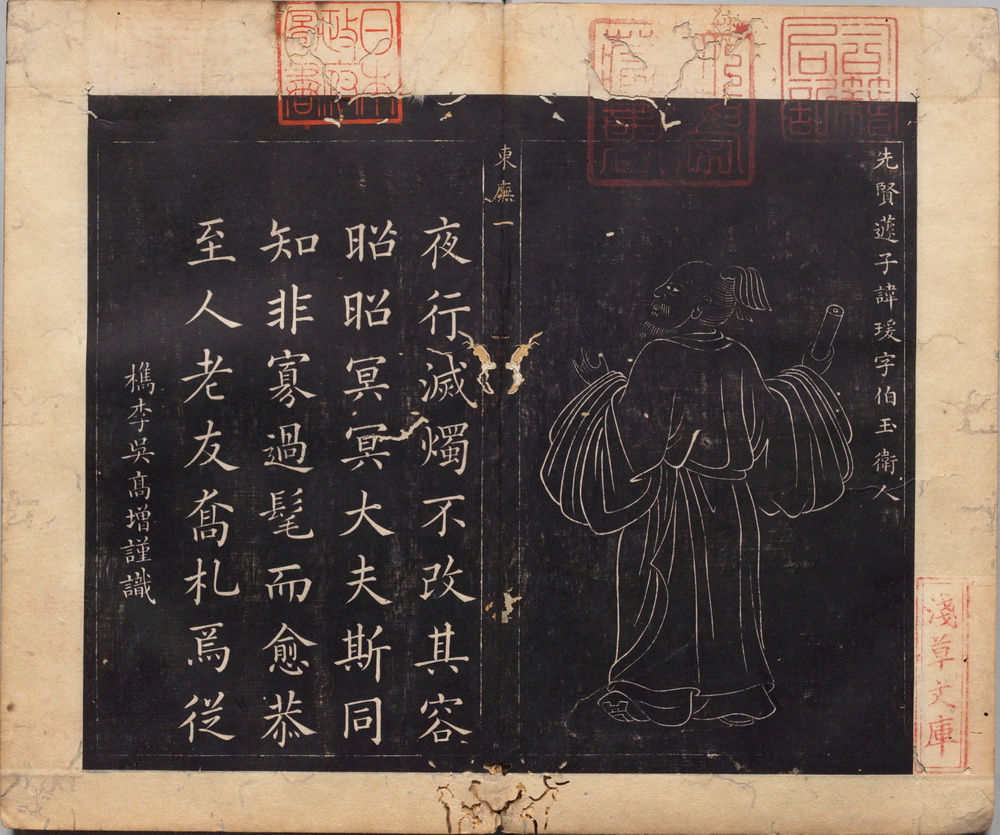 先賢蘧子諱瑗字伯玉衛人
淺草文庫
東廡一
夜行滅燭不改其容
昭昭冥冥大夫斯同
知非寡過髦而愈恭
至人老友喬札焉從
檇李吳髙增謹識
日本政府圖書